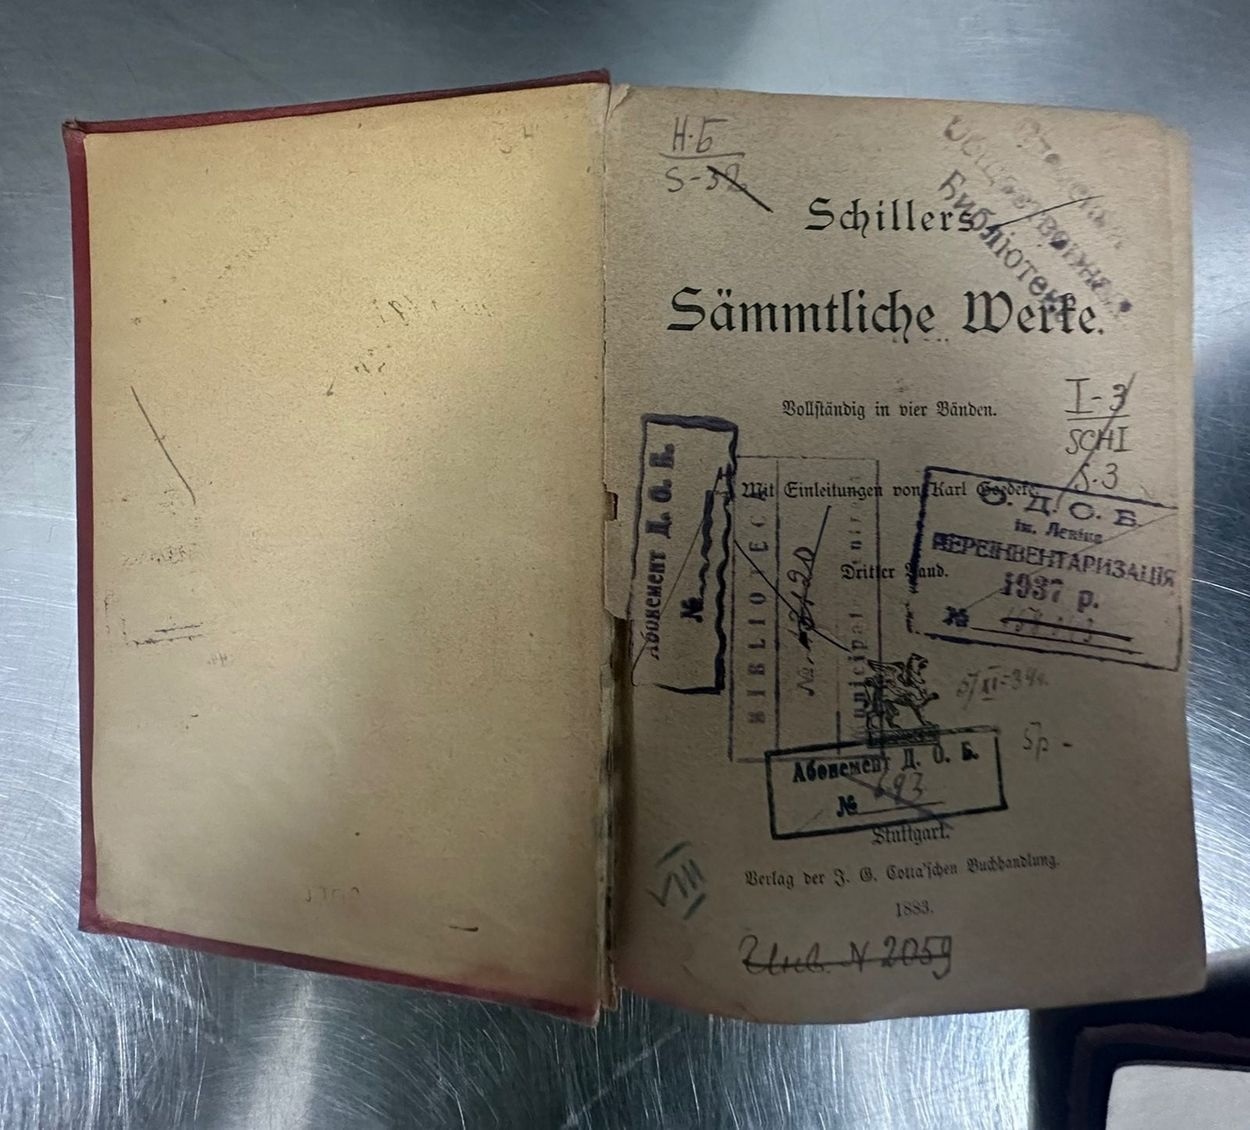 Н-Б
S-32
Общественная
Библіотека
Schillers
Sämmtliche Werke.
Vollständig in vier Bänden.
I-3
SCHI
S-3
Mit Einleitungen von Karl Goedeke.
Dritter Band.
Абонемент Д. О. Б.
№
BIBLIOTEC
№
О. Д. О. Б.
ім. Леніна
ПЕРЕІНВЕНТАРИЗАЦІЯ
1937 р.
№
5р -
Абонемент Д. О. Б.
№ 693
Stuttgart.
Verlag der J. G. Cotta'schen Buchhandlung.
1883.
VIII
Инв. N 2059